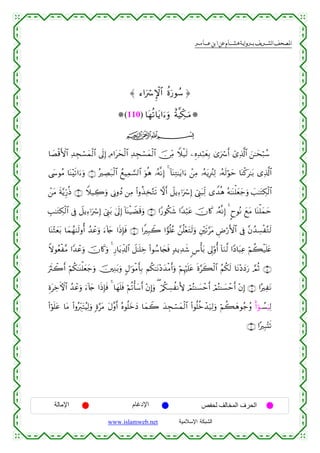 المصحف الشريف برواية هشام عن ابن عامر
﴿ سُورَةُ ٱلْإِسْرَاءِ ﴾
* مَكِّيَّةٌ وَءَايَاتُهَا (110) *
﷽
سُبْحَٰنَ ٱلَّذِىٓ أَسْرَىٰ بِعَبْدِهِۦ لَيْلًا مِّنَ ٱلْمَسْجِدِ ٱلْحَرَامِ إِلَى ٱلْمَسْجِدِ ٱلْأَقْصَا
ٱلَّذِى بَٰرَكْنَا حَوْلَهُۥ لِنُرِيَهُۥ مِنْ ءَايَٰتِنَآ ۚ إِنَّهُۥ هُوَ ٱلسَّمِيعُ ٱلْبَصِيرُ ۝ وَءَاتَيْنَا مُوسَى
ٱلْكِتَٰبَ وَجَعَلْنَٰهُ هُدًى لِّبَنِىٓ إِسْرَٰٓءِيلَ أَلَّا تَتَّخِذُوا۟ مِن دُونِى وَكِيلًا ۝ ذُرِّيَّةَ مَنْ
حَمَلْنَا مَعَ نُوحٍ ۚ إِنَّهُۥ كَانَ عَبْدًا شَكُورًا ۝ وَقَضَيْنَآ إِلَىٰ بَنِىٓ إِسْرَٰٓءِيلَ فِى ٱلْكِتَٰبِ
لَتُفْسِدُنَّ فِى ٱلْأَرْضِ مَرَّتَيْنِ وَلَتَعْلُنَّ عُلُوًّا كَبِيرًا ۝ فَإِذَا جَآءَ وَعْدُ أُولَىٰهُمَا بَعَثْنَا
عَلَيْكُمْ عِبَادًا لَّنَآ أُو۟لِى بَأْسٍ شَدِيدٍ فَجَاسُوا۟ خِلَٰلَ ٱلدِّيَارِ ۚ وَكَانَ وَعْدًا مَّفْعُولًا
۝ ثُمَّ رَدَدْنَا لَكُمُ ٱلْكَرَّةَ عَلَيْهِمْ وَأَمْدَدْنَٰكُم بِأَمْوَٰلٍ وَبَنِينَ وَجَعَلْنَٰكُمْ أَكْثَرَ
نَفِيرًا ۝ إِنْ أَحْسَنتُمْ أَحْسَنتُمْ لِأَنفُسِكُمْ ۖ وَإِنْ أَسَأْتُمْ فَلَهَا ۚ فَإِذَا جَآءَ وَعْدُ ٱلْءَاخِرَةِ
لِيَسُـࣳٓءَ وُجُوهَكُمْ وَلِيَدْخُلُوا۟ ٱلْمَسْجِدَ كَمَا دَخَلُوهُ أَوَّلَ مَرَّةٍ وَلِيُتَبِّرُوا۟ مَا عَلَوْا۟
تَتْبِيرًا ۝
الحرف المخالف لحفص الإدغام الإمالة
الشبكة الإسلامية www.islamweb.net